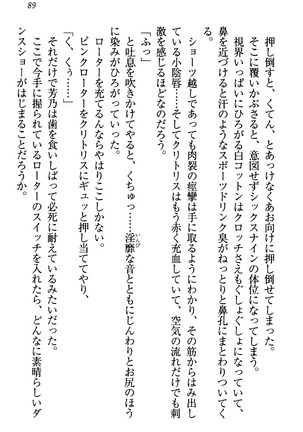 89
押し倒すと、くてん、とあっけなくあお向けに押し倒せてしまった。
そこに覆いかぶさると、意図せずシックスナインの体位になってしまう。
視界いっぱいにひろがる白コットンはクロッチさえもぐしょぐしょになっていて、
鼻を近づけると汗のようなスポーツドリンク臭がねっとりと鼻孔にまとわりつく。
ショーツ越しであっても肉裂の痙攣は手に取るようにわかり、その筋からはみ出し
ている小陰唇――そしてクリトリスはもう赤く充血していて、空気の流れだけでも刺
激を感じるほどなのだろう。
「ふっ」
と吐息を吹きかけてやると、くちゅっ……淫靡な音とともにじんわりとお尻のほう
いんび
に染みがひろがっていった。
ローターを充てるんならやはりここしかない。
ピンクローターをクリトリスにギュッと押し当ててやり、
「く、くぅ……」
それだけで芳乃は歯を食いしばって必死に耐えているみたいだった。
ここで今手に握られているローターのスイッチを入れたら、どんなに素晴らしいダ
ンスショーがはじまることだろうか。